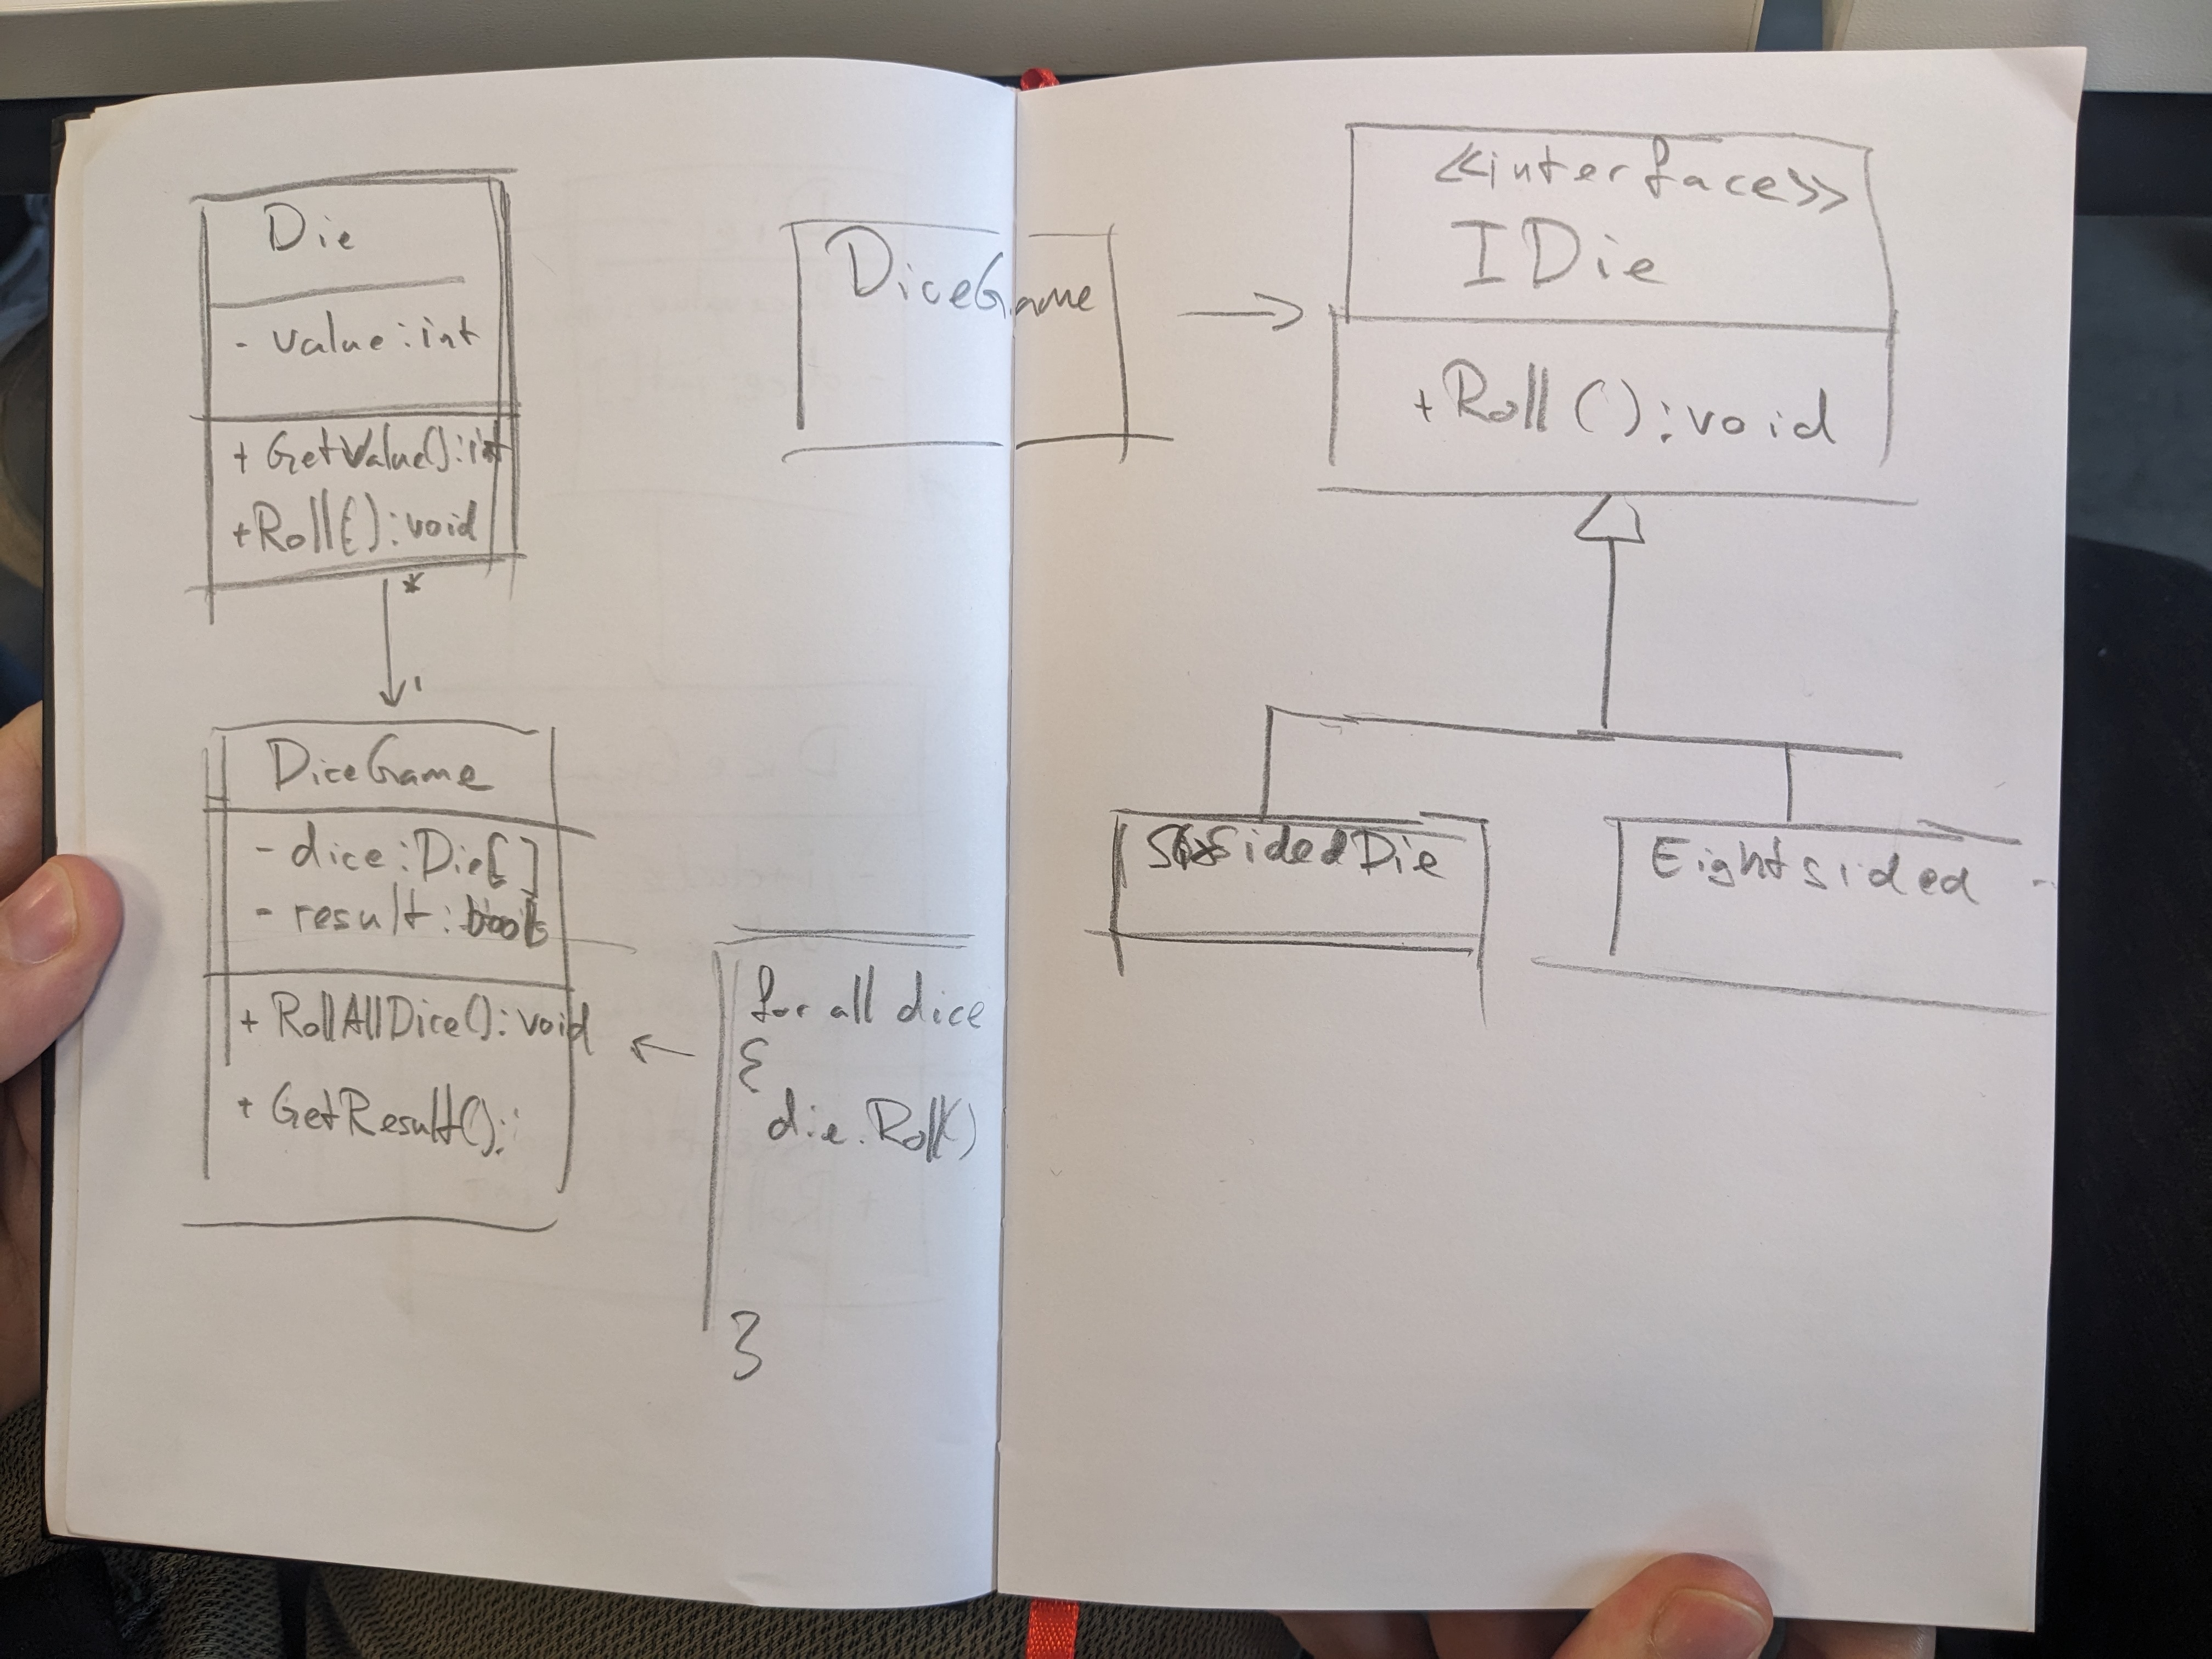 Die
- value:int
+ GetValue():int
+Roll():void
*
1
DiceGame
- dice:Die[]
- result:bool
+ RollAllDice():void
+ GetResult():
for all dice
{
die.Roll()
}
DiceGame
<<interface>>
IDie
+Roll():void
SixSidedDie
Eightsided -